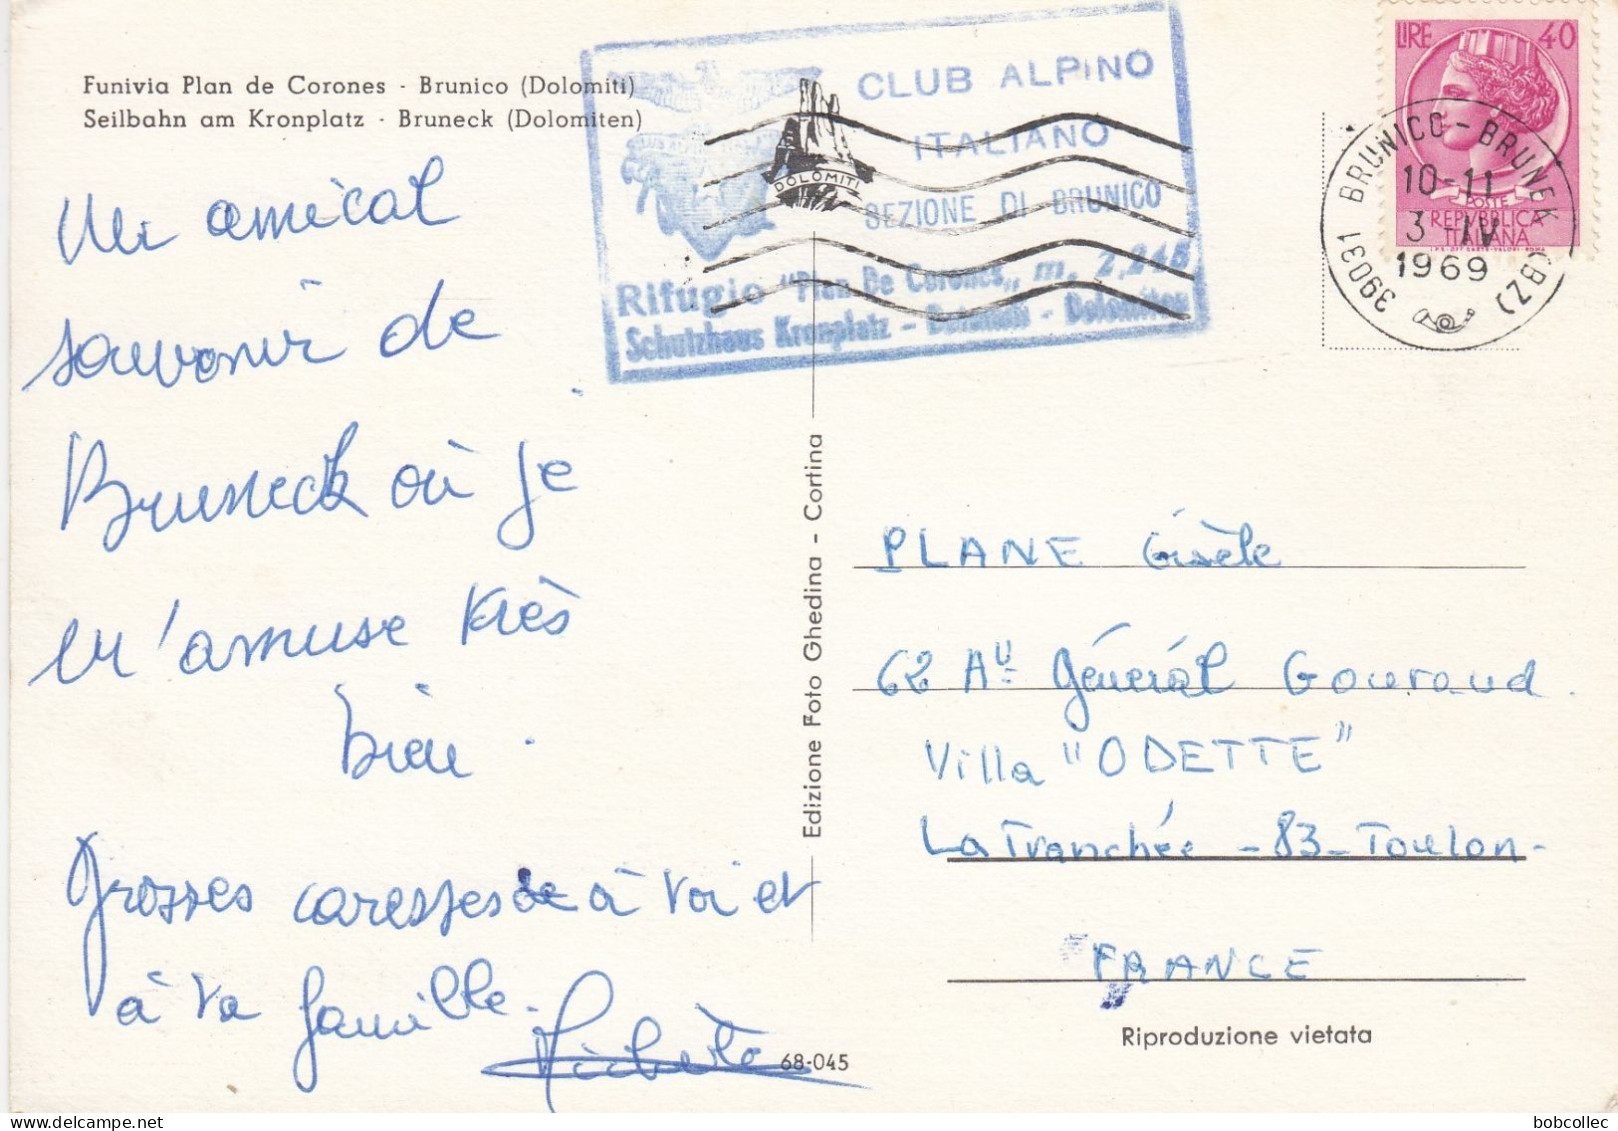 Funivia Plan de Corones - Brunico (Dolomiti)
Seilbahn am Kronplatz - Bruneck (Dolomiten)
CLUB ALPINO
ITALIANO
SEZIONE DI BRUNICO
Rifugio "Plan De Corones" m. 2,245
Schutzhaus Kronplatz - Dolomiti - Dolomiten
DOLOMITI
LIRE 40
POSTE
REPVBBLICA
ITALIANA
39031 BRUNICO - BRUNECK (BZ)
10-11
3 -IV
1969
Un amical
souvenir de
Bruneck où je
m'amuse très
bien.
Grosses caresses à toi et
à ta famille.
Edizione Foto Ghedina - Cortina
PLANE Gisèle
62 Au Général Gouraud.
Villa "ODETTE"
La Tranchée - 83 - Toulon -
FRANCE
Riproduzione vietata
68-045
bobcollec